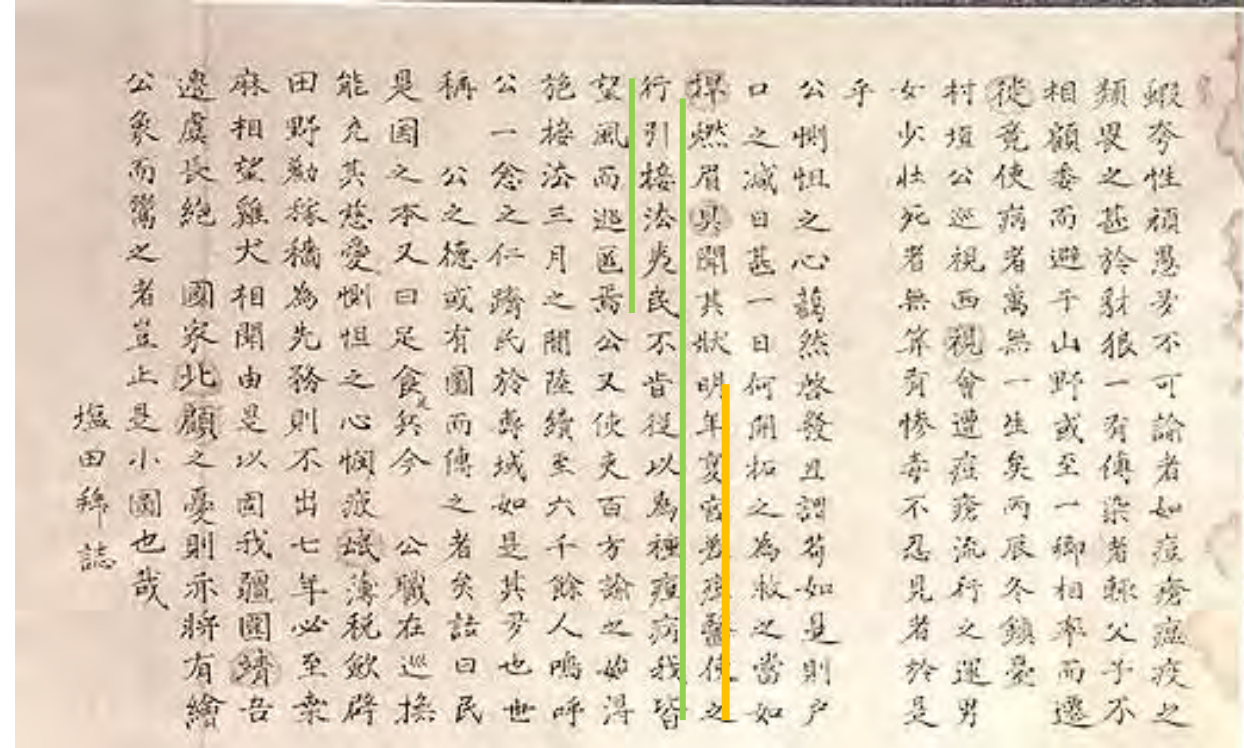 蝦夷性頑愚夛不可諭者如痘瘡瘟疫之
類畏之甚於豺狼一有傳染者輙父子不
相顧委而避于山野或至一郷相率而遷
徙竟使病者萬無一生矣丙辰冬鎮臺
村垣公巡視西視會遭痘瘡流行之運男
女少壮死者無算有惨毒不忍見者於是
乎
公惻怛之心藹然啓發且謂苟如是則戸
口之減日甚一日何開拓之為牧之當如
捍燃眉具聞其狀明年夏官差痘醫使之
行引接法夷民不肯従以為種痘病我皆
望風而逃匿焉公又使吏百方諭之始得
施接法三月之間陸續至六千餘人嗚呼
公一念之仁躋民於壽域如是其夛也世
稱 公之徳或有圖而傳之者矣詰曰民
是国之本又曰足食足兵今 公職在巡撫
能充其慈愛惻怛之心憫疲氓薄税斂辟
田野勧稼穡為先務則不出七年必至桒
麻相望雞犬相聞由是以固我疆圉靖吾
邊虞長絶 國家北顧之憂則亦將有繪
公象而觴之者豈止是小圖也哉
塩田拜誌